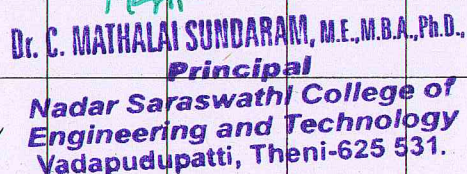 Dr. C. MATHALAI SUNDARAM, M.E.,M.B.A.,Ph.D.,
Principal
Nadar Saraswathi College of
Engineering and Technology
Vadapudupatti, Theni-625 531.